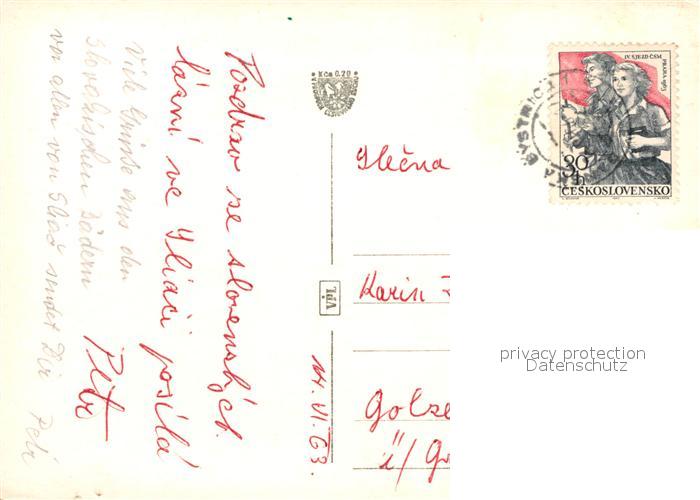 Pozdrav ze slovenských
lázní ve Sliači posílá
Petr
Viele Grüße aus den
slovakischen Bädern
vor allem von Sliač sendet Dir Petr
14. VI. 63.
Kčs 0.20
TÚV
Slečna
Karin
Golze
ü/
IV. SJEZD ČSM
PRAHA 1963
30 h
ČESKOSLOVENSKO
BYSTRICA
privacy protection
Datenschutz